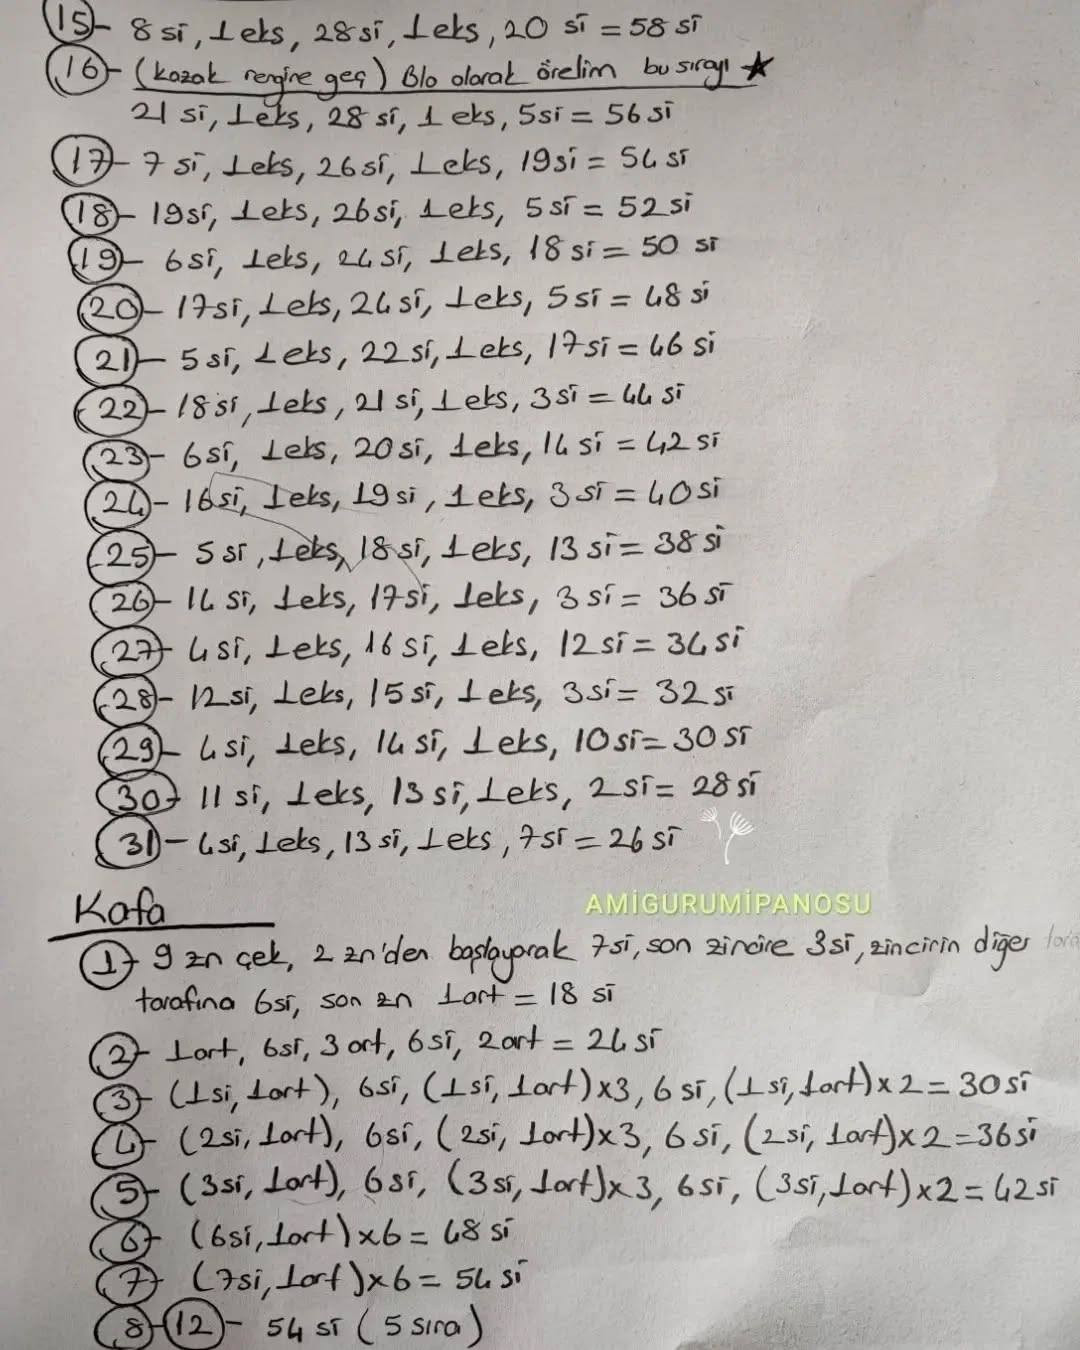 15- 8 si, 1 eks, 28 si, 1 eks, 20 si = 58 si
16- (kazak rengine geç) Blo olarak örelim bu sırayı ★
21 si, 1 eks, 28 si, 1 eks, 5 si = 56 si
17- 7 si, 1 eks, 26 si, 1 eks, 19 si = 54 si
18- 19 si, 1 eks, 26 si, 1 eks, 5 si = 52 si
19- 6 si, 1 eks, 24 si, 1 eks, 18 si = 50 si
20- 17 si, 1 eks, 24 si, 1 eks, 5 si = 48 si
21- 5 si, 1 eks, 22 si, 1 eks, 17 si = 46 si
22- 18 si, 1 eks, 21 si, 1 eks, 3 si = 44 si
23- 6 si, 1 eks, 20 si, 1 eks, 14 si = 42 si
24- 16 si, 1 eks, 19 si, 1 eks, 3 si = 40 si
25- 5 si, 1 eks, 18 si, 1 eks, 13 si = 38 si
26- 14 si, 1 eks, 17 si, 1 eks, 3 si = 36 si
27- 4 si, 1 eks, 16 si, 1 eks, 12 si = 34 si
28- 12 si, 1 eks, 15 si, 1 eks, 3 si = 32 si
29- 4 si, 1 eks, 14 si, 1 eks, 10 si = 30 si
30- 11 si, 1 eks, 13 si, 1 eks, 2 si = 28 si
31- 4 si, 1 eks, 13 si, 1 eks, 7 si = 26 si
Kafa
AMİGURUMİPANOSU
1- 9 zn çek, 2 zn'den başlayarak 7 si, son zincire 3 si, zincirin diğer
tarafına 6 si, son zn 1 art = 18 si
2- 1 art, 6 si, 3 art, 6 si, 2 art = 24 si
3- (1 si, 1 art), 6 si, (1 si, 1 art) x 3, 6 si, (1 si, 1 art) x 2 = 30 si
4- (2 si, 1 art), 6 si, (2 si, 1 art) x 3, 6 si, (2 si, 1 art) x 2 = 36 si
5- (3 si, 1 art), 6 si, (3 si, 1 art) x 3, 6 si, (3 si, 1 art) x 2 = 42 si
6- (6 si, 1 art) x 6 = 48 si
7- (7 si, 1 art) x 6 = 54 si
8-12- 54 si (5 sıra)